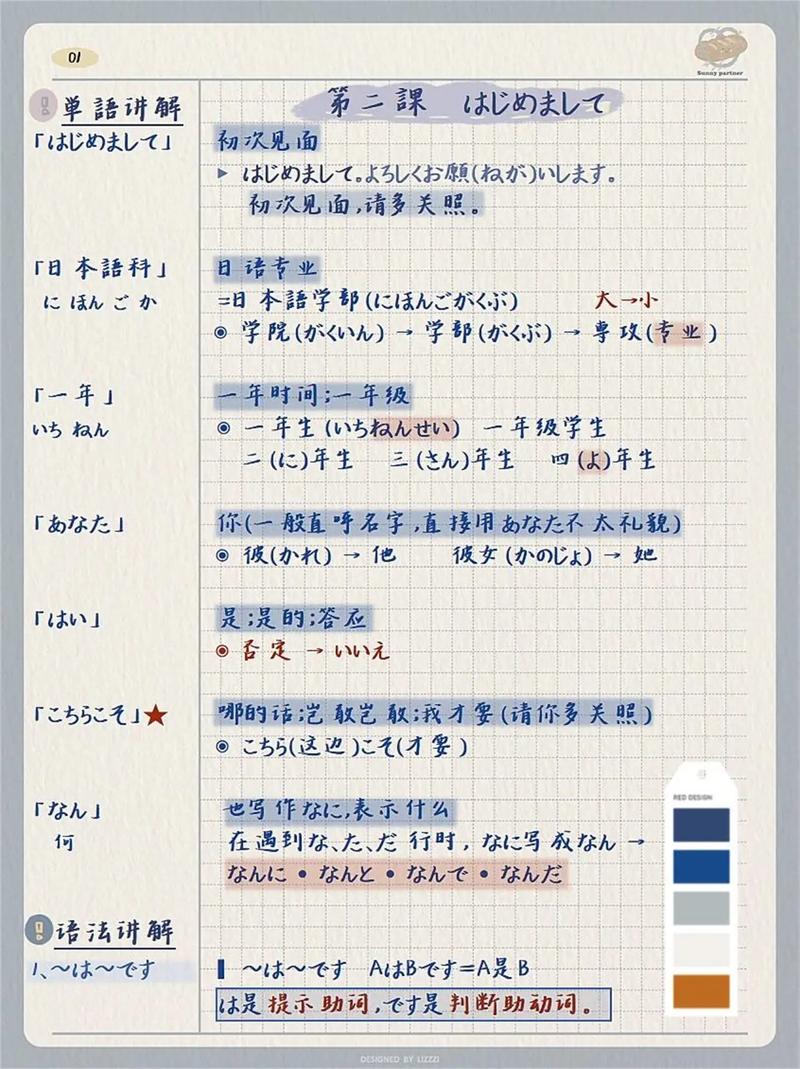 01
Sunny partner
単語讲解
第二課 はじめまして
「はじめまして」 初次见面
▶ はじめまして。よろしくお願(ねが)いします。
初次见面,请多关照。
「日本語科」 日语专业
にほんごか =日本語学部(にほんごがくぶ) 大→小
◉ 学院(がくいん) → 学部(がくぶ) → 専攻(专业)
「一年」 一年时间;一年级
いちねん ◉ 一年生(いちねんせい) 一年级学生
二(に)年生 三(さん)年生 四(よ)年生
「あなた」 你(一般直呼名字,直接用あなた不太礼貌)
◉ 彼(かれ) → 他 彼女(かのじょ) → 她
「はい」 是;是的;答应
◉ 否定 → いいえ
「こちらこそ」★ 哪的话;岂敢岂敢;我才要(请你多关照)
◉ こちら(这边)こそ(才要)
「なん」 也写作なに,表示什么
何 在遇到な、た、だ行时,なに写成なん →
なんに • なんと • なんで • なんだ
RED DESIGN
语法讲解
1、～は～です ～は～です AはBです=A是B
は是提示助词,です是判断助动词。
DESIGNED BY LIZZZI